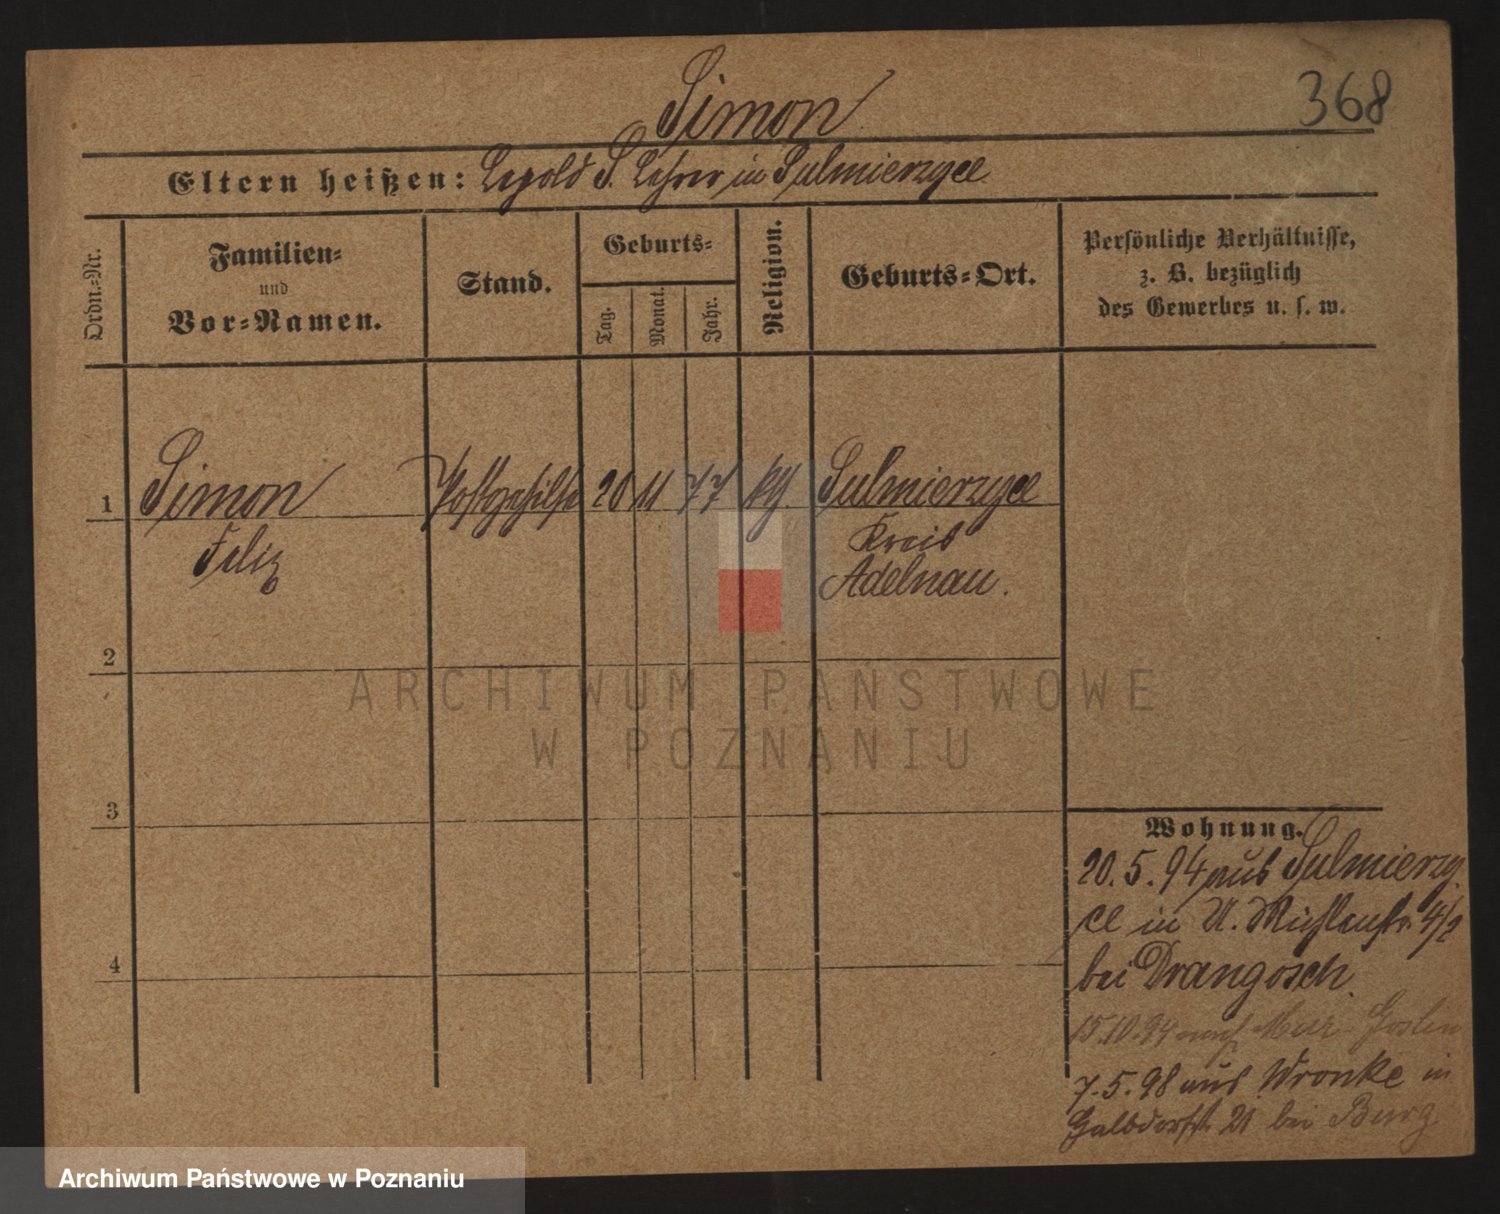 Simon
368
Eltern heißen: Leopold S. Lehrer in Sulmierzyce
Ordn.-Nr.
Familien-
und
Vor-Namen.
Stand.
Geburts-
Tag.
Monat.
Jahr.
Religion.
Geburts-Ort.
Persönliche Verhältnisse,
z. B. bezüglich
des Gewerbes u. s. w.
1 Simon Postgehilfe 20 11 77 Sulmierzyce
Felix
Kreis
Adelnau.
2
3
4
Wohnung.
20.5.94 aus Sulmierzy
ce in U. Mühlenstr. 4/2
bei Drangosch.
15.10.94 nach
7.5.98 aus Wronke in
21 bei Burg
ARCHIWUM PAŃSTWOWE
W POZNANIU
Archiwum Państwowe w Poznaniu